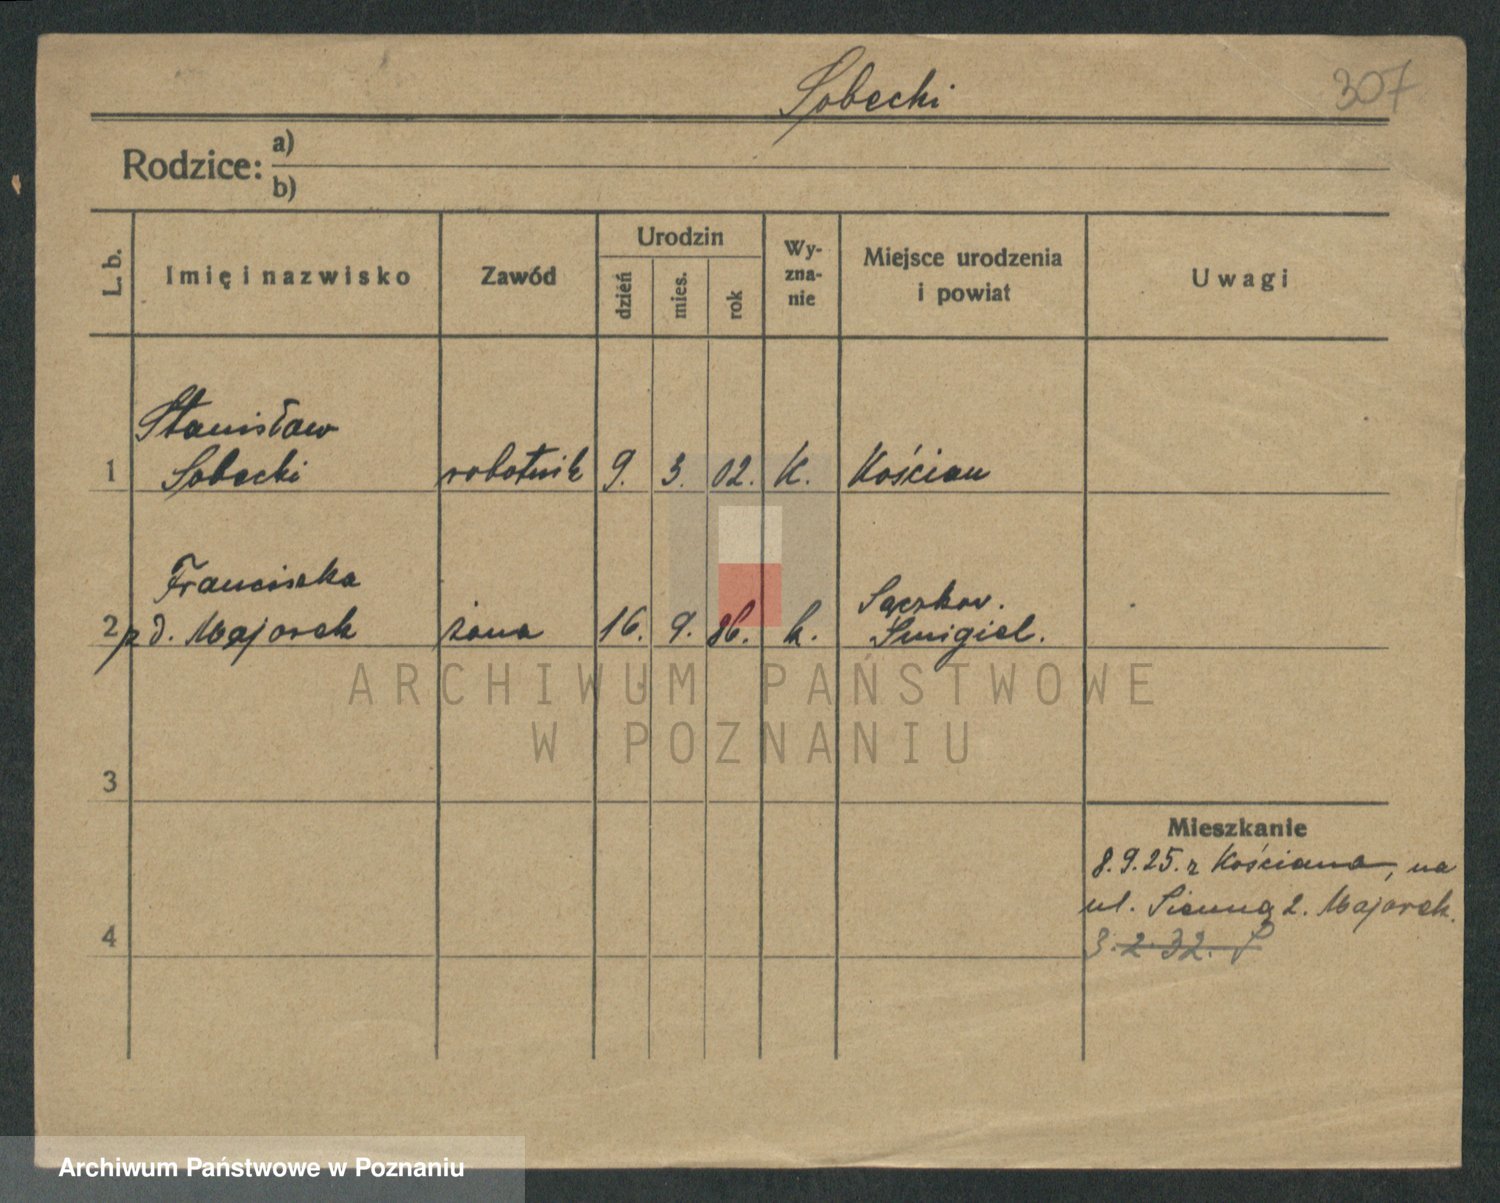 Sobecki
307
Rodzice: a)
b)
L. b.
Imię i nazwisko
Zawód
Urodzin
dzień
mies.
rok
Wy-
zna-
nie
Miejsce urodzenia
i powiat
Uwagi
Stanisław
1 Sobecki robotnik 9. 3. 02. K. Kościan
Franciszka Sączkow.
2 z d. Majorek żona 16. 9. 86. k. Śmigiel.
3
Mieszkanie
8.9.25. z Kościana, na
ul. Sienną 2. Majorek.
4
3.2.32.
ARCHIWUM PAŃSTWOWE
W POZNANIU
Archiwum Państwowe w Poznaniu